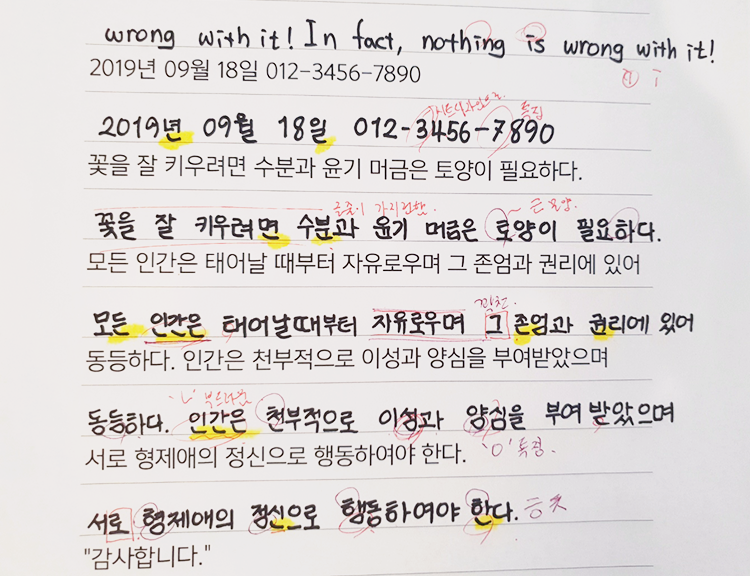 wrong with it! In fact, nothing is wrong with it!
2019년 09월 18일 012-3456-7890
2019년 09월 18일 012-3456-7890
꽃을 잘 키우려면 수분과 윤기 머금은 토양이 필요하다.
꽃을 잘 키우려면 수분과 윤기 머금은 토양이 필요하다.
모든 인간은 태어날 때부터 자유로우며 그 존엄과 권리에 있어
모든 인간은 태어날때부터 자유로우며 그 존엄과 권리에 있어
동등하다. 인간은 천부적으로 이성과 양심을 부여받았으며
'ㄴ' 부드러운
동등하다. 인간은 천부적으로 이성과 양심을 부여 받았으며
서로 형제애의 정신으로 행동하여야 한다. 'ㅇ' 특징.
서로 형제애의 정신으로 행동하여야 한다.
"감사합니다."